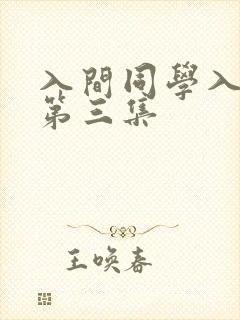 入間同學入
第三集
王喚春